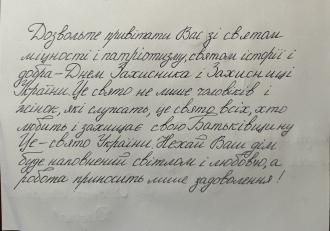 Дозвольте привітати Вас зі святом
міцності і патріотизму, святом історії і
добра – Днем Захисника і Захисниці
України. Це свято не лише чоловіків і
жінок, які служать, це свято всіх, хто
любить і захищає свою Батьківщину
Це – свято України. Нехай Ваш дім
буде наповнений світлом і любовю, а
робота приносить лише задоволення!